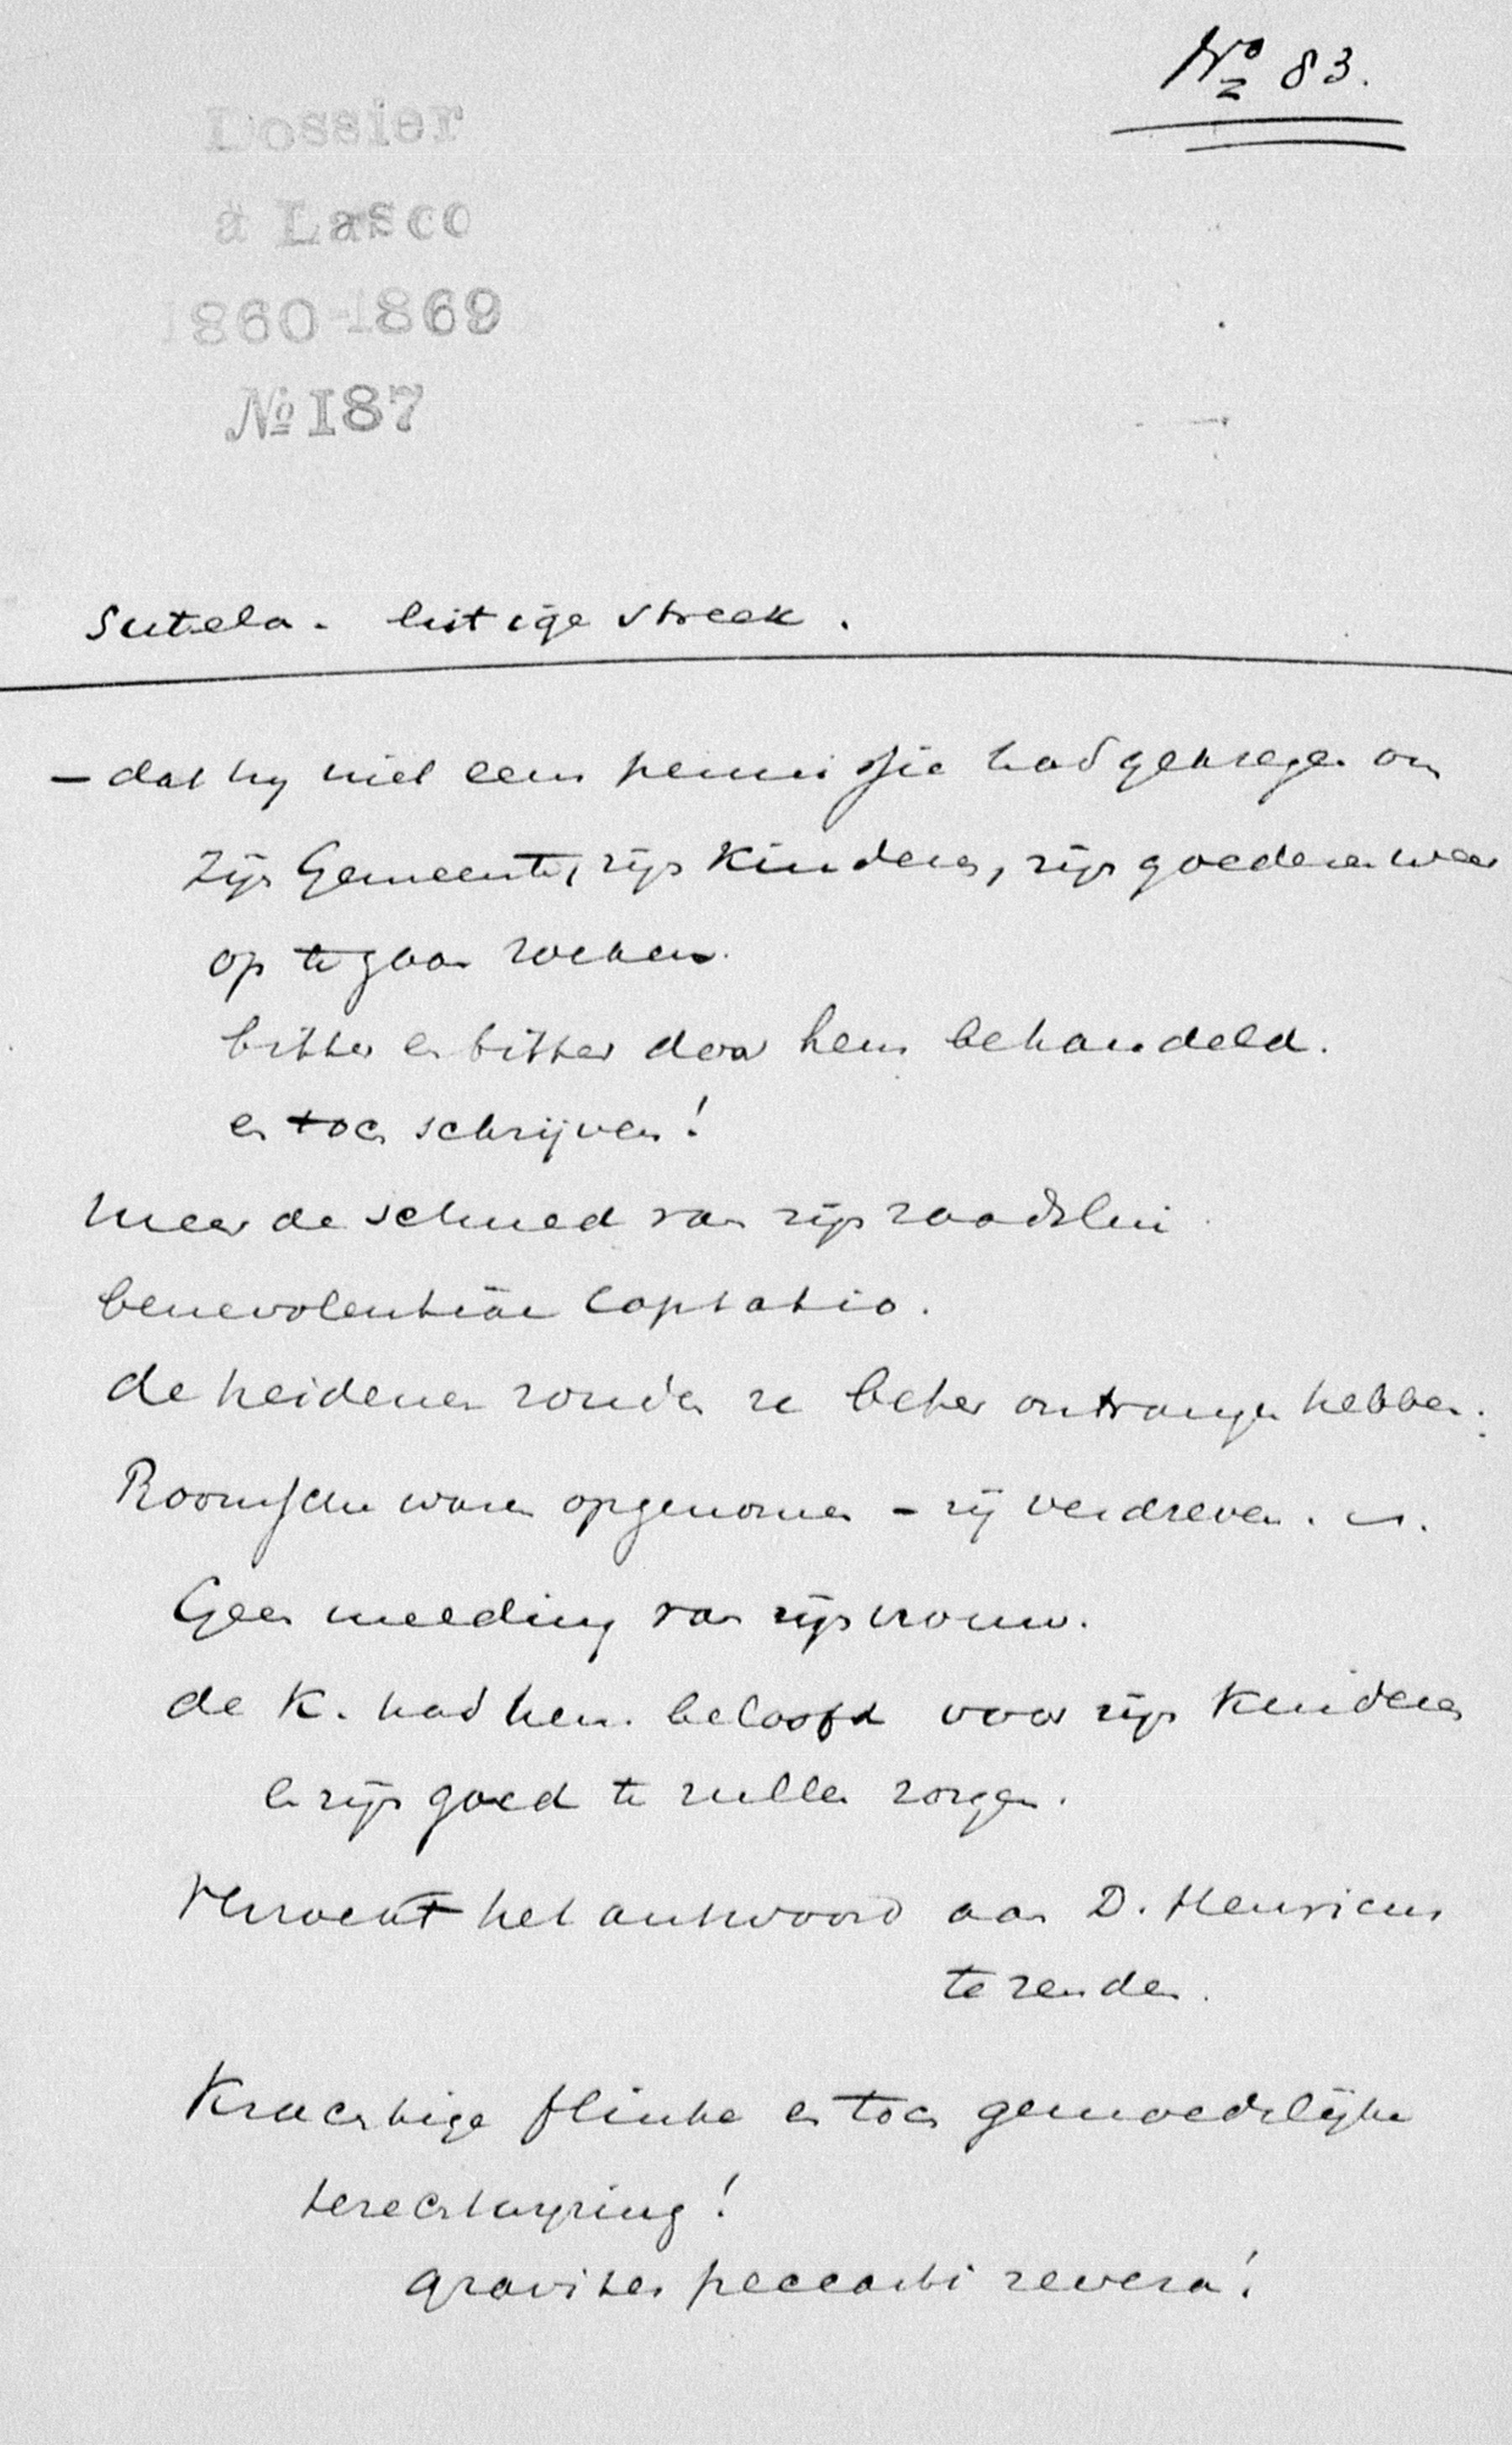 No 83.
Dossier
à Lasco
1860-1869
No 187
Sutela. listige streek.
- dat hij niet eens permissie had gekregen om
zijn Gemeente, zijn Kinderen, zijn goederen weer
op te gaan zoeken.
bitter en bitter door hem behandeld.
en toch schrijven!
Meer de schuld van zijn raadslui.
benevolentiae captatio.
de heidenen zouden ze beter ontvangen hebben.
Roomsche waren opgenomen - zij verdreven.
Geen melding van zijn vrouw.
de K. had hem beloofd voor zijn Kinderen
en zijn goed te zullen zorgen.
Verzoekt het antwoord aan D. Henricus
te zenden.
Krachtige flinke en toch gemoedelijke
terechtwijzing!
graviter peccasti revera!